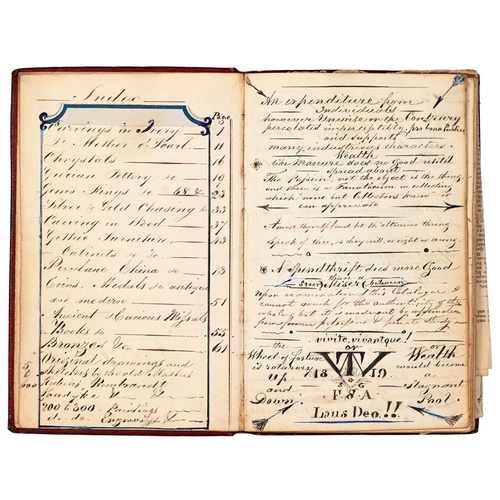 Index
Page
Carvings in Ivory 1
do Mother o' Pearl 11
Chrystals 16
Grecian Pottery do 19
Gems Rings do 23
Silver & Gold Chasing do 33
Carving in Wood 37
Gothic Furniture 43
Cabinets do do
Porcelane China do 13
Coins. Medals do antique
and modern 51
Ancient & Curious Missals
Books do 55
Bronzes &c 61
Original drawings and
Sketches by the old Masters
Rubens Rembrandt
Vandyke &c
200 to 300 Paintings
do do Engravings &c
An expenditure from
Individuals
however Unwise on the Contrary
percolates imperceptibly pro bono Publico
and supports
many industrious characters.
Wealth
like Manure does no Good until
Spread abroad
The Passion, not the object is the thing,
and there is a Fanaticism in collecting
which none but Collectors
can appreciate
Amuse thyself! and let the
speak of thee, as they will, or right or wrong
A Spendthrift does more Good
than a
Miser (between
upon examination of this Catalogue I
cannot vouch for the authenticity of the
whole, but it is made out by information
from former possessors & private
vivite, vivatque!
or
the
Wheel of fortune
is rotatory
up
and
Down.
TVT
1819
F.S.A
Laus Deo.!!
or
Wealth
would become
a
Stagnant
Pool.